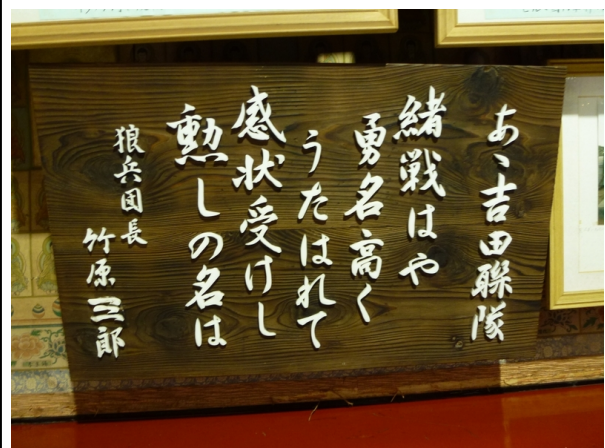 あゝ吉田聯隊
緒戦はや
勇名高く
うたはれて
感状受けし
勲しの名は
狼兵団長
竹原三郎